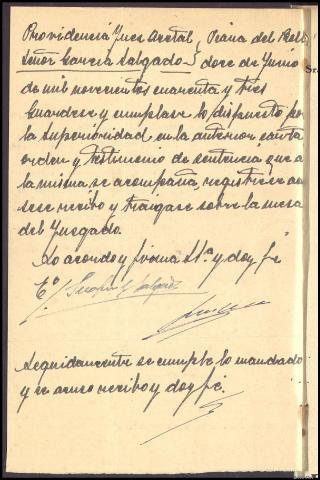 Providencia Juez Acctal, Piana del Rell
Señor García Salgado.- doce de Junio
de mil novecientos cuarenta y tres
Guardese y cumplase lo dispuesto por
la superioridad en la anterior carta
orden y testimonio de sentencia que a
la misma se acompaña, registrese acu
sese recibo y traigase sobre la mesa
del Juzgado.
Lo acordó y firma S.Sª y doy fé
Eº/
Seguidamente se cumple lo mandado
y se acuso recibo y doy fé.